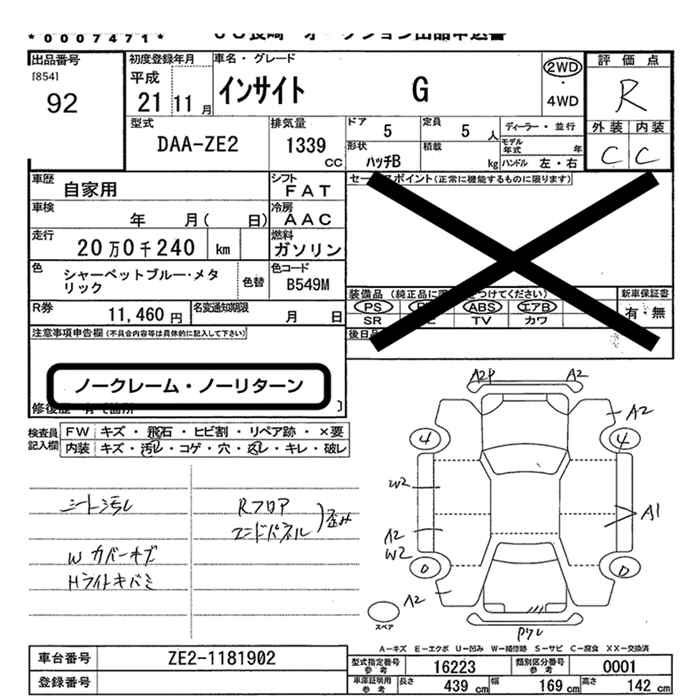 *0007471* ＵＳ長崎 オークション出品申込書
出品番号 初度登録年月 車名・グレード 評価点
[854] 平成 2WD
92 21 11月 インサイト G ・ R
4WD
型式 排気量 ドア 定員 ディーラー・並行 外装 内装
DAA-ZE2 1339 CC 5 5 人 モデル年式 年 C C
形状 積載 ハンドル 左・右
ハッチB kg
車歴 自家用 シフト FAT セールスポイント(正常に機能するものに限ります)
車検 年 月( 日) 冷房 AAC
走行 20万0千240 km 燃料 ガソリン
色 シャーベットブルー・メタリック 色替 色コード B549M 装備品(純正品に つけてください) 新車保証書
PS ABS エアB 有・無
R券 11,460円 名変通知期限 月 日 SR TV カワ
注意事項申告欄(不具合内容等は具体的に記入して下さい) 後日
ノークレーム・ノーリターン
修復歴
検査員記入欄 FW キズ・飛石・ヒビ割・リペア跡・×要
内装 キズ・汚れ・コゲ・穴・返し・キレ・破レ
A2P A2
A2
4 4
シート汚レ Rフロア W2
エンドパネル )歪み A1
Wカバーキズ A2
W2
Hライトキバミ 0 0
A2
スペア Pワレ
A－キズ E－エクボ U－凹み W－補修跡 S－サビ C－腐食 XX－交換済
車台番号 ZE2-1181902 型式指定番号参考 16223 類別区分番号参考 0001
登録番号 車庫証明用参考 長さ 439 cm 幅 169 cm 高さ 142 cm